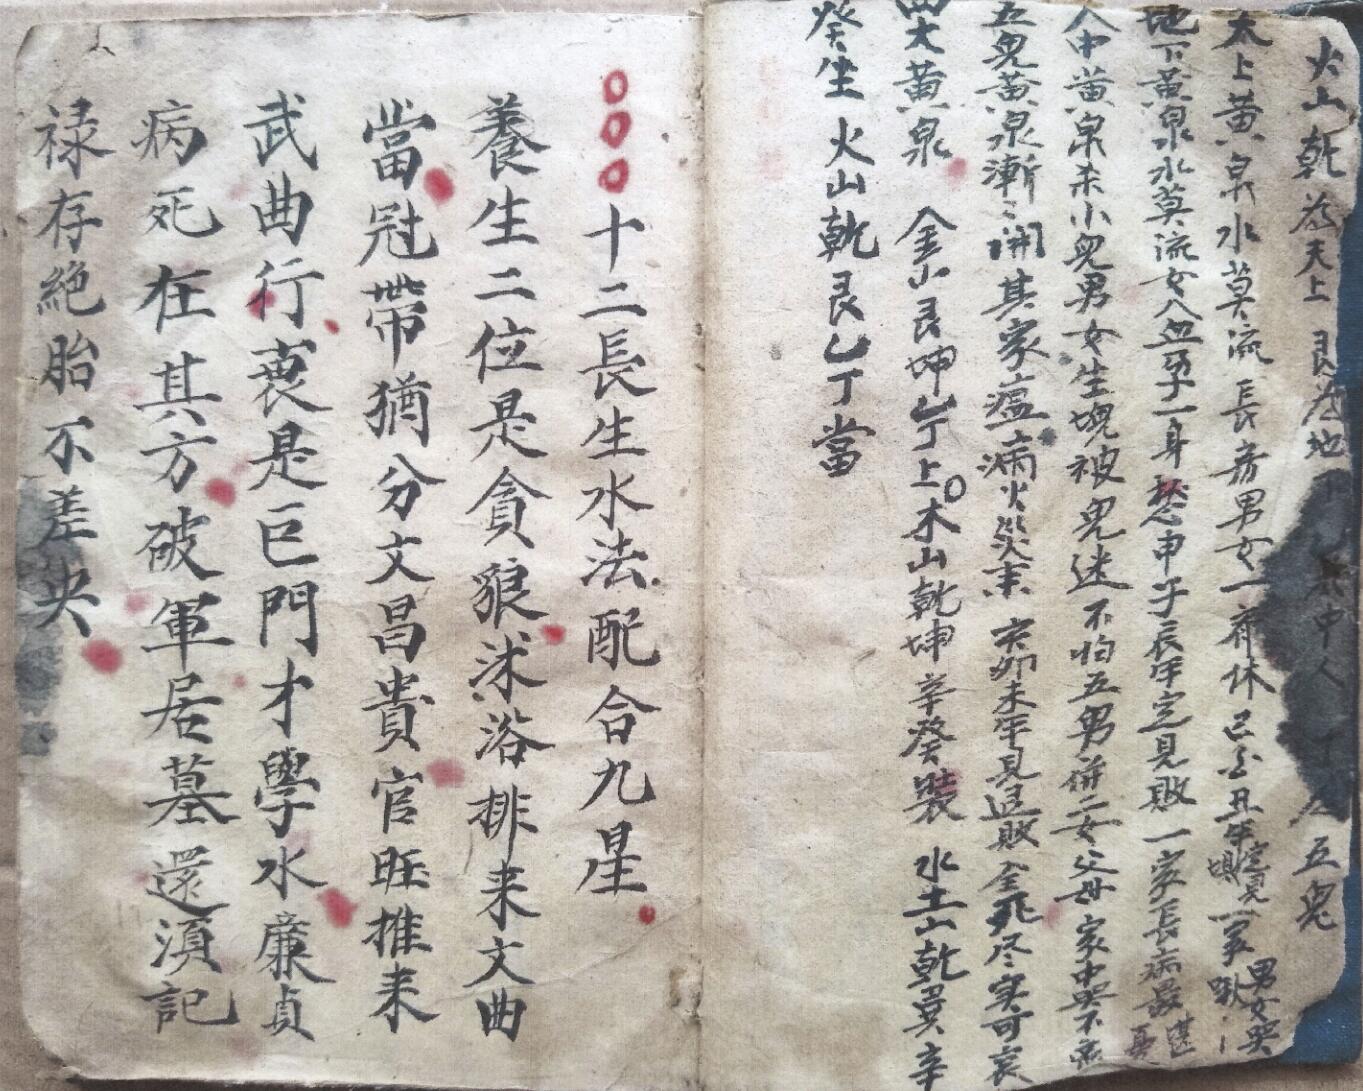 火山乾為天上 艮為地 中人 五鬼
太上黃泉水莫流長房男女一齊休巳酉丑年定見一家 男女哭
地下黃泉水莫流女人血孕一身愁申子辰年定見敗一家長病最堪憂
人中黃泉未小鬼男女生塊被鬼迷不怕五男併二女父母家中哭不
五鬼黃泉漸〻開其家瘟病火災來亥卯未年見退敗全死尽实可哀
四大黃泉 金山艮坤乙丁上○木山乾坤辛癸裝 水土山乾巽辛
癸坐 火山乾艮乙丁當
〇〇〇十二長生水法配合九星
養生二位是貪狼沐浴排来文曲
當冠帶猶分文昌貴官旺推来
武曲行衰是巨門才學水廉貞
病死在其方破軍居墓還湏記
禄存絶胎不差央